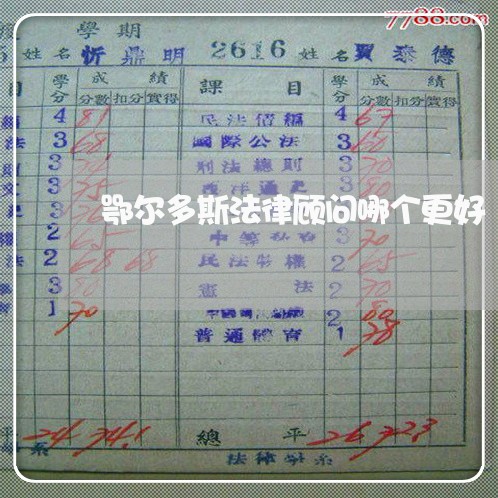 7788.com
學期
姓名 忻鼎明 2616 姓名 賈泰德
目 學分 成績 課目 學分 成績
分數 扣分 實得 分數 扣分 實得
4 81 民法債編 4 67
法 3 68 國際公法 3 60
3 刑法總則 3 70
3 75 西洋通史 3 80
鄂尔多斯法律顾问哪个更好
2 65 3 70
法 2 68 68 民法物權 2 65
3 80 憲法 2 70
1 70 2 80
普通體育 1 78
平 24 74.1 總平 26 72.3
系 法律學系